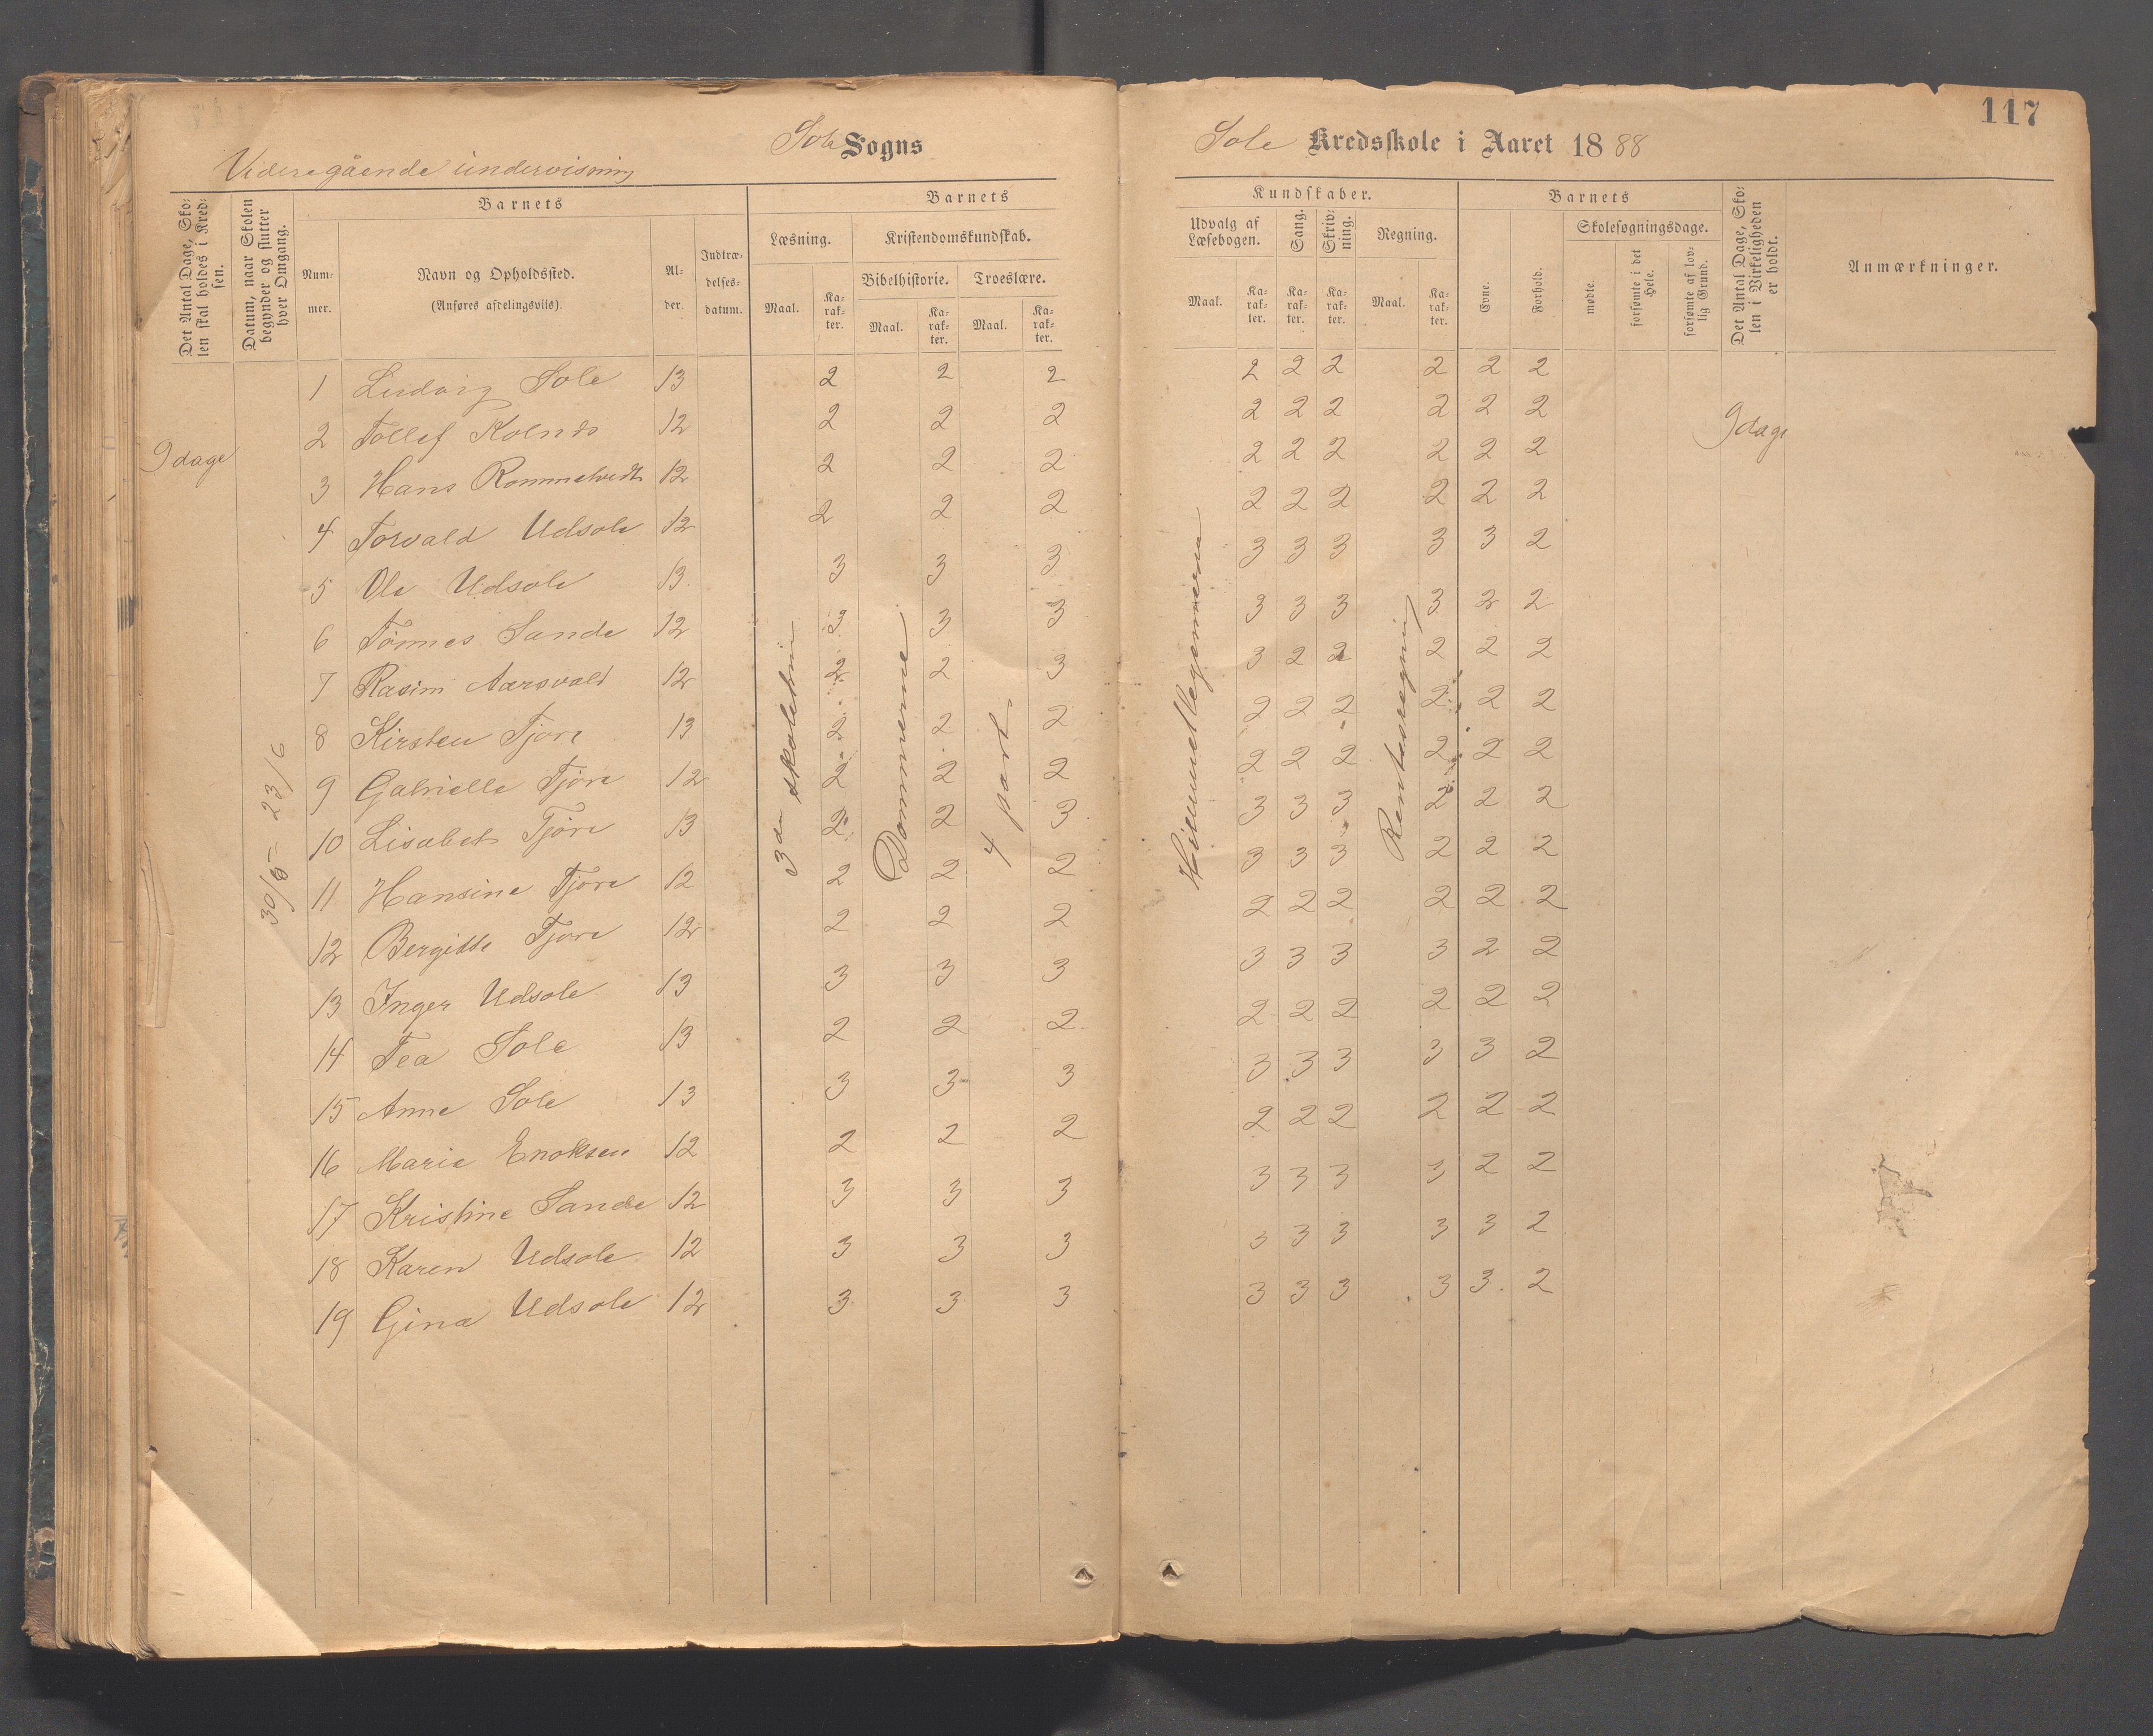 117
Sole Sogns
Sole Kredsskole i Aaret 1888
Videregående undervisning
Det Antal Dage, Skolen skal holdes i Kredsen.
Datum, naar Skolen begynder og slutter hver Omgang.
Barnets
Nummer.
Navn og Opholdssted.
(Anføres afdelingsvis).
Alder.
Indtrædelsesdatum.
Barnets
Læsning.
Maal.
Karakter.
Kristendomskundskab.
Bibelhistorie.
Maal.
Karakter.
Troeslære.
Maal.
Karakter.
Kundskaber.
Udvalg af Læsebogen.
Maal.
Karakter.
Sang.
Karakter.
Skrivning.
Karakter.
Regning.
Maal.
Karakter.
Barnets
Evne.
Forhold.
Skolesøgningsdage.
mødte.
forsømte i det Hele.
forsømte af lovlig Grund.
Det Antal Dage, Skolen i Virkeligheden er holdt.
Anmærkninger.
9 dage
30/5 - 23/6
Dommerne
4 part
9 dage
1 Ludvig Sole 13 2 2 2 2 2 2 2 2 2
2 Tollef 12 2 2 2 2 2 2 2 2 2
3 Hans 12 2 2 2 2 2 2 2 2 2
4 Torvald Udsole 12 2 2 2 2 2 2 2 2 2
5 Ole Udsole 13 3 3 3 3 3 3 3 3 2
6 Tønnes Sande 12 3 3 3 3 3 3 3 2 2
7 Rasim Aarsvold 12 2 2 3 3 2 2 2 2 2
8 Kirsten Tjore 13 2 2 2 2 2 2 2 2 2
9 Gabrielle Tjøre 12 2 2 2 2 2 2 2 2 2
10 Lisabet Tjøre 13 2 2 3 3 3 3 2 2 2
11 Hansine Tjore 12 2 2 2 3 3 3 2 2 2
12 Bergitte Tjore 12 2 2 2 2 2 2 2 2 2
13 Inger Udsole 13 3 3 3 3 3 3 3 2 2
14 Tea Sole 13 2 2 2 2 2 2 2 2 2
15 Anne Sole 13 3 3 3 3 3 3 3 3 2
16 Marie Enoksen 12 2 2 2 2 2 2 2 2 2
17 Kristine Sande 12 3 3 3 3 3 3 3 2 2
18 Karen Udsole 12 3 3 3 3 3 3 3 3 2
19 Gina Udsole 12 3 3 3 3 3 3 3 3 2